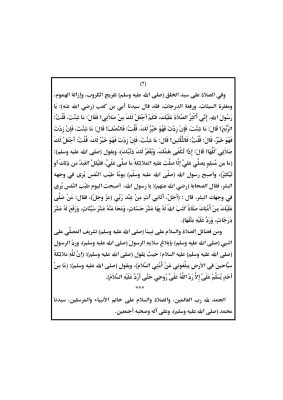 (٣)
وفي الصلاة على سيد الخلق (صلى الله عليه وسلم) تفريج الكروب، وإزالة الهموم،
ومغفرة السيئات، ورفعة الدرجات، فقد قال سيدنا أبي بن كعب (رضي الله عنه): يَا
رَسُولَ اللهِ، إِنِّي أُكْثِرُ الصَّلَاةَ عَلَيْكَ، فَكَمْ أَجْعَلُ لَكَ مِنْ صَلَاتِي؟ فَقَالَ: مَا شِئْتَ، قُلْتُ:
الرُّبُعَ؟ قَالَ: مَا شِئْتَ، فَإِنْ زِدْتَ فَهُوَ خَيْرٌ لَكَ، قُلْتُ: فَالنِّصْفَ؟ قَالَ: مَا شِئْتَ، فَإِنْ زِدْتَ
فَهُوَ خَيْرٌ لَكَ، قُلْتُ: فَالثُّلُثَيْنِ؟ قَالَ: مَا شِئْتَ، فَإِنْ زِدْتَ فَهُوَ خَيْرٌ لَكَ، قُلْتُ: أَجْعَلُ لَكَ
صَلَاتِي كُلَّهَا؟ قَالَ: إِذًا تُكْفَى هَمَّكَ، وَيُغْفَرُ لَكَ ذَنْبُكَ)، ويقول (صلى الله عليه وسلم):
(مَا مِنْ مُسْلِمٍ يُصَلِّي عَلَيَّ إِلَّا صَلَّتْ عَلَيْهِ الْمَلَائِكَةُ مَا صَلَّى عَلَيَّ، فَلْيُقِلَّ الْعَبْدُ مِنْ ذَلِكَ أَوْ
لِيُكْثِرْ)، وأصبح رسول الله (صلى الله عليه وسلم) يومًا طيّب النّفس يُرى في وجهه
البشر، فقال الصحابة (رضي الله عنهم): يا رسول الله، أصبحت اليوم طيّب النّفس يُرى
في وجهك البشر، قال: (أَجَلْ، أَتَانِي آتٍ مِنْ عِنْدِ رَبِّي (عز وجل)، فَقَالَ: مَنْ صَلَّى
عَلَيْكَ مِنْ أُمَّتِكَ صَلَاةً كَتَبَ اللهُ لَهُ بِهَا عَشْرَ حَسَنَاتٍ، وَمَحَا عَنْهُ عَشْرَ سَيِّئَاتٍ، وَرَفَعَ لَهُ عَشْرَ
دَرَجَاتٍ، وَرَدَّ عَلَيْهِ مِثْلَهَا).
ومن فضائل الصلاة والسلام على نبينا (صلى الله عليه وسلم) تشريف المصلّي على
النبي (صلى الله عليه وسلم) بإبلاغ سلامه الرسول (صلى الله عليه وسلم)، وردّ الرسول
(صلى الله عليه وسلم) عليه السلام؛ حيث يقول (صلى الله عليه وسلم): (إنّ للهِ مَلَائِكَةً
سَيَّاحِينَ فِي الْأَرْضِ يُبَلِّغُونِي عَنْ أُمَّتِي السَّلَامَ)، ويقول (صلى الله عليه وسلم): (مَا مِنْ
أَحَدٍ يُسَلِّمُ عَلَيَّ إِلَّا رَدَّ اللهُ عَلَيَّ رُوحِي حَتَّى أَرُدَّ عَلَيْهِ السَّلَامَ).
***
الحمد لله رب العالمين، والصلاة والسلام على خاتم الأنبياء والمرسلين، سيدنا
محمد (صلى الله عليه وسلم)، وعلى آله وصحبه أجمعين.